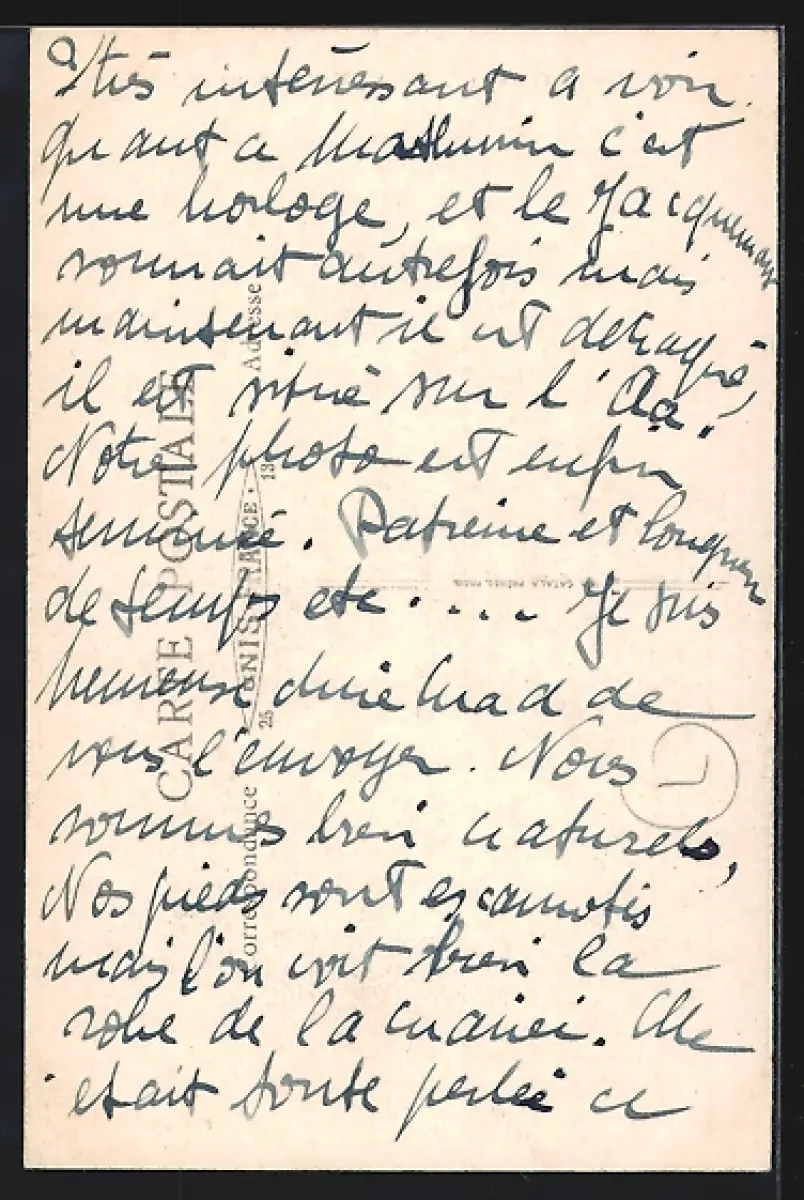 très intéressant a voir.
Quant a Mathurin c'est
une horloge, et le Jacquemart
sonnait autrefois mais
maintenant il est détraqué,
il est situé sur l'Aa.
Notre photo est enfin
terminée. Patience et longueur
de temps etc.... Je suis
heureuse chère Mad de
vous l'envoyer. Nous
sommes bien naturels,
Nos pieds sont escamotés
mais l'on voit bien la
robe de la mariée. Elle
etait toute perlée ce
CARTE POSTALE
Correspondance
Adresse
25 UNIS FRANCE 13
CATALA FRÈRES, PARIS
L